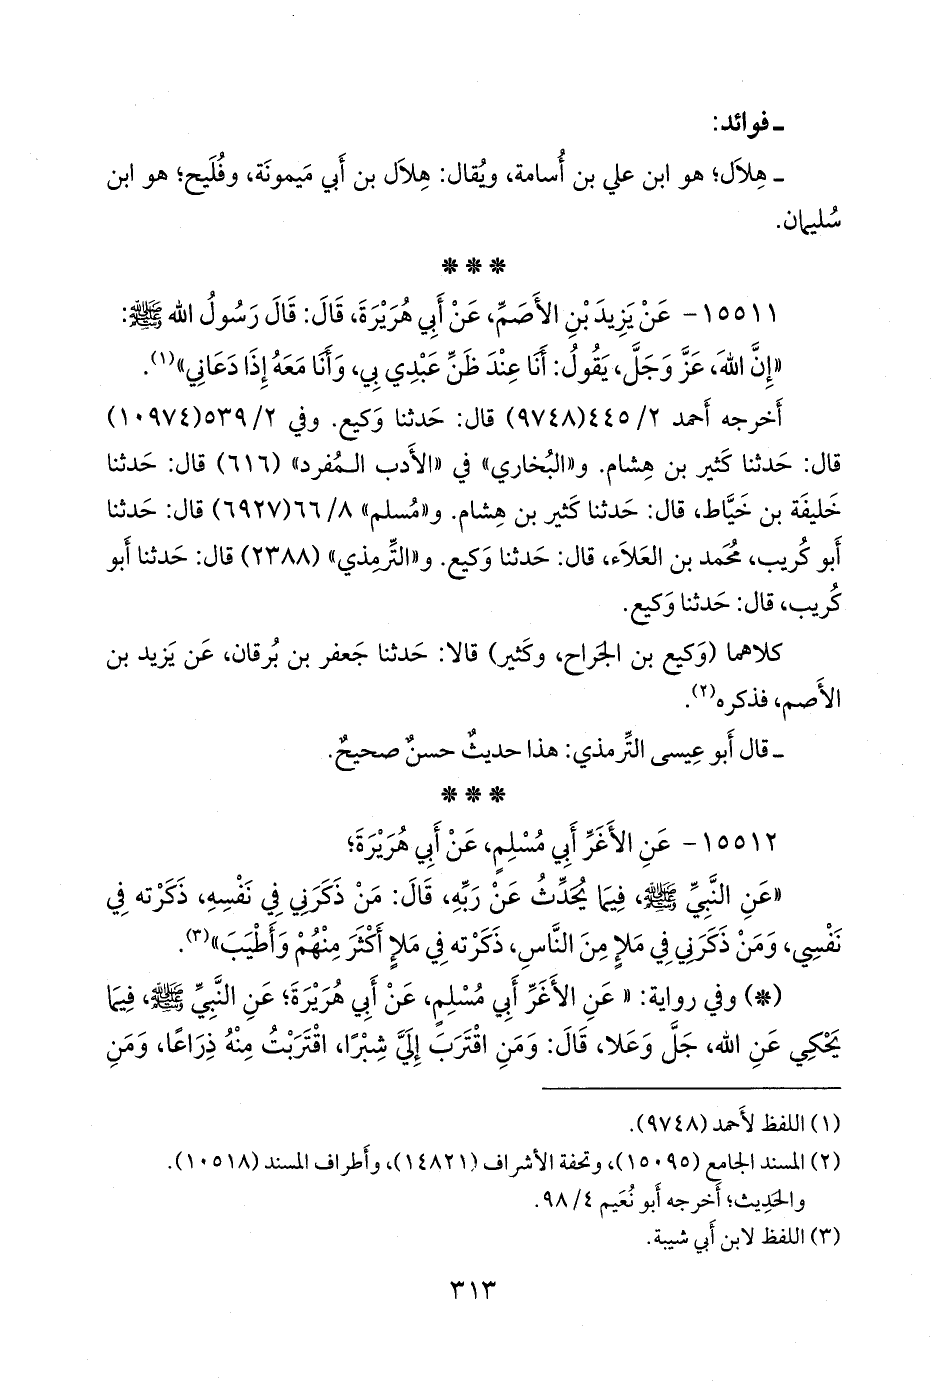 ـ فوائد:
ـ هِلاَل؛ هو ابن علي بن أُسامة، ويُقال: هِلاَل بن أَبي مَيمونَة، وفُلَيح؛ هو ابن
سُليمان.
* * *
١٥٥١١- عَنْ يَزِيدَ بْنِ الأَصَمِّ، عَنْ أَبِي هُرَيْرَةَ، قَالَ: قَالَ رَسُولُ الله ﷺ:
«إِنَّ اللهَ، عَزَّ وَجَلَّ، يَقُولُ: أَنَا عِنْدَ ظَنِّ عَبْدِي بِي، وَأَنَا مَعَهُ إِذَا دَعَانِي»(١).
أخرجه أَحمد ٢/ ٤٤٥(٩٧٤٨) قال: حَدثنا وَكيع. وفي ٢/ ٥٣٩(١٠٩٧٤)
قال: حَدثنا كَثير بن هِشام. و«البُخاري» في «الأَدب الـمُفرد» (٦١٦) قال: حَدثنا
خَليفَة بن خَيَّاط، قال: حَدثنا كَثير بن هِشام. و«مُسلم» ٨/ ٦٦(٦٩٢٧) قال: حَدثنا
أَبو كُريب، مُحَمد بن العَلاَء، قال: حَدثنا وَكيع. و«التِّرمِذي» (٢٣٨٨) قال: حَدثنا أَبو
كُريب، قال: حَدثنا وَكيع.
كلاهما (وَكيع بن الجَراح، وكَثير) قالا: حَدثنا جَعفر بن بُرقان، عَن يَزيد بن
الأَصم، فذكره(٢).
ـ قال أَبو عِيسى التِّرمذي: هذا حديثٌ حسنٌ صحيحٌ.
* * *
١٥٥١٢- عَنِ الأَغَرِّ أَبِي مُسْلِمٍ، عَنْ أَبِي هُرَيْرَةَ؛
«عَنِ النَّبِيِّ ﷺ، فِيمَا يُحَدِّثُ عَنْ رَبِّهِ، قَالَ: مَنْ ذَكَرَنِي فِي نَفْسِهِ، ذَكَرْته فِي
نَفْسِي، وَمَنْ ذَكَرَنِي فِي مَلإٍ مِنَ النَّاسِ، ذَكَرْته فِي مَلإٍ أَكْثَرَ مِنْهُمْ وَأَطْيَبَ»(٣).
(*) وفي رواية: «عَنِ الأَغَرِّ أَبِي مُسْلِمٍ، عَنْ أَبِي هُرَيْرَةَ؛ عَنِ النَّبِيِّ ﷺ، فِيمَا
يَحْكِي عَنِ الله، جَلَّ وَعَلا، قَالَ: وَمَنِ اقْتَرَبَ إِلَيَّ شِبْرًا، اقْتَرَبْتُ مِنْهُ ذِرَاعًا، وَمَنِ
(١) اللفظ لأَحمد (٩٧٤٨).
(٢) المسند الجامع (١٥٠٩٥)، وتحفة الأشراف (١٤٨٢١)، وأَطراف المسند (١٠٥١٨).
والحَدِيث؛ أَخرجه أَبو نُعَيم ٤/ ٩٨.
(٣) اللفظ لابن أَبي شيبة.
٣١٣